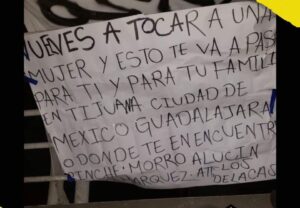 VUEVES A TOCAR A UNA
MUJER Y ESTO TE VA A PASA
PARA TI Y PARA TU FAMILI
EN TIJUANA CIUDAD DE
MEXICO GUADALAJARA
O DONDE TE ENCUENTR
PINCHE MORRO ALUCIN
ARQUEZ. ATT LOS
DELACAS